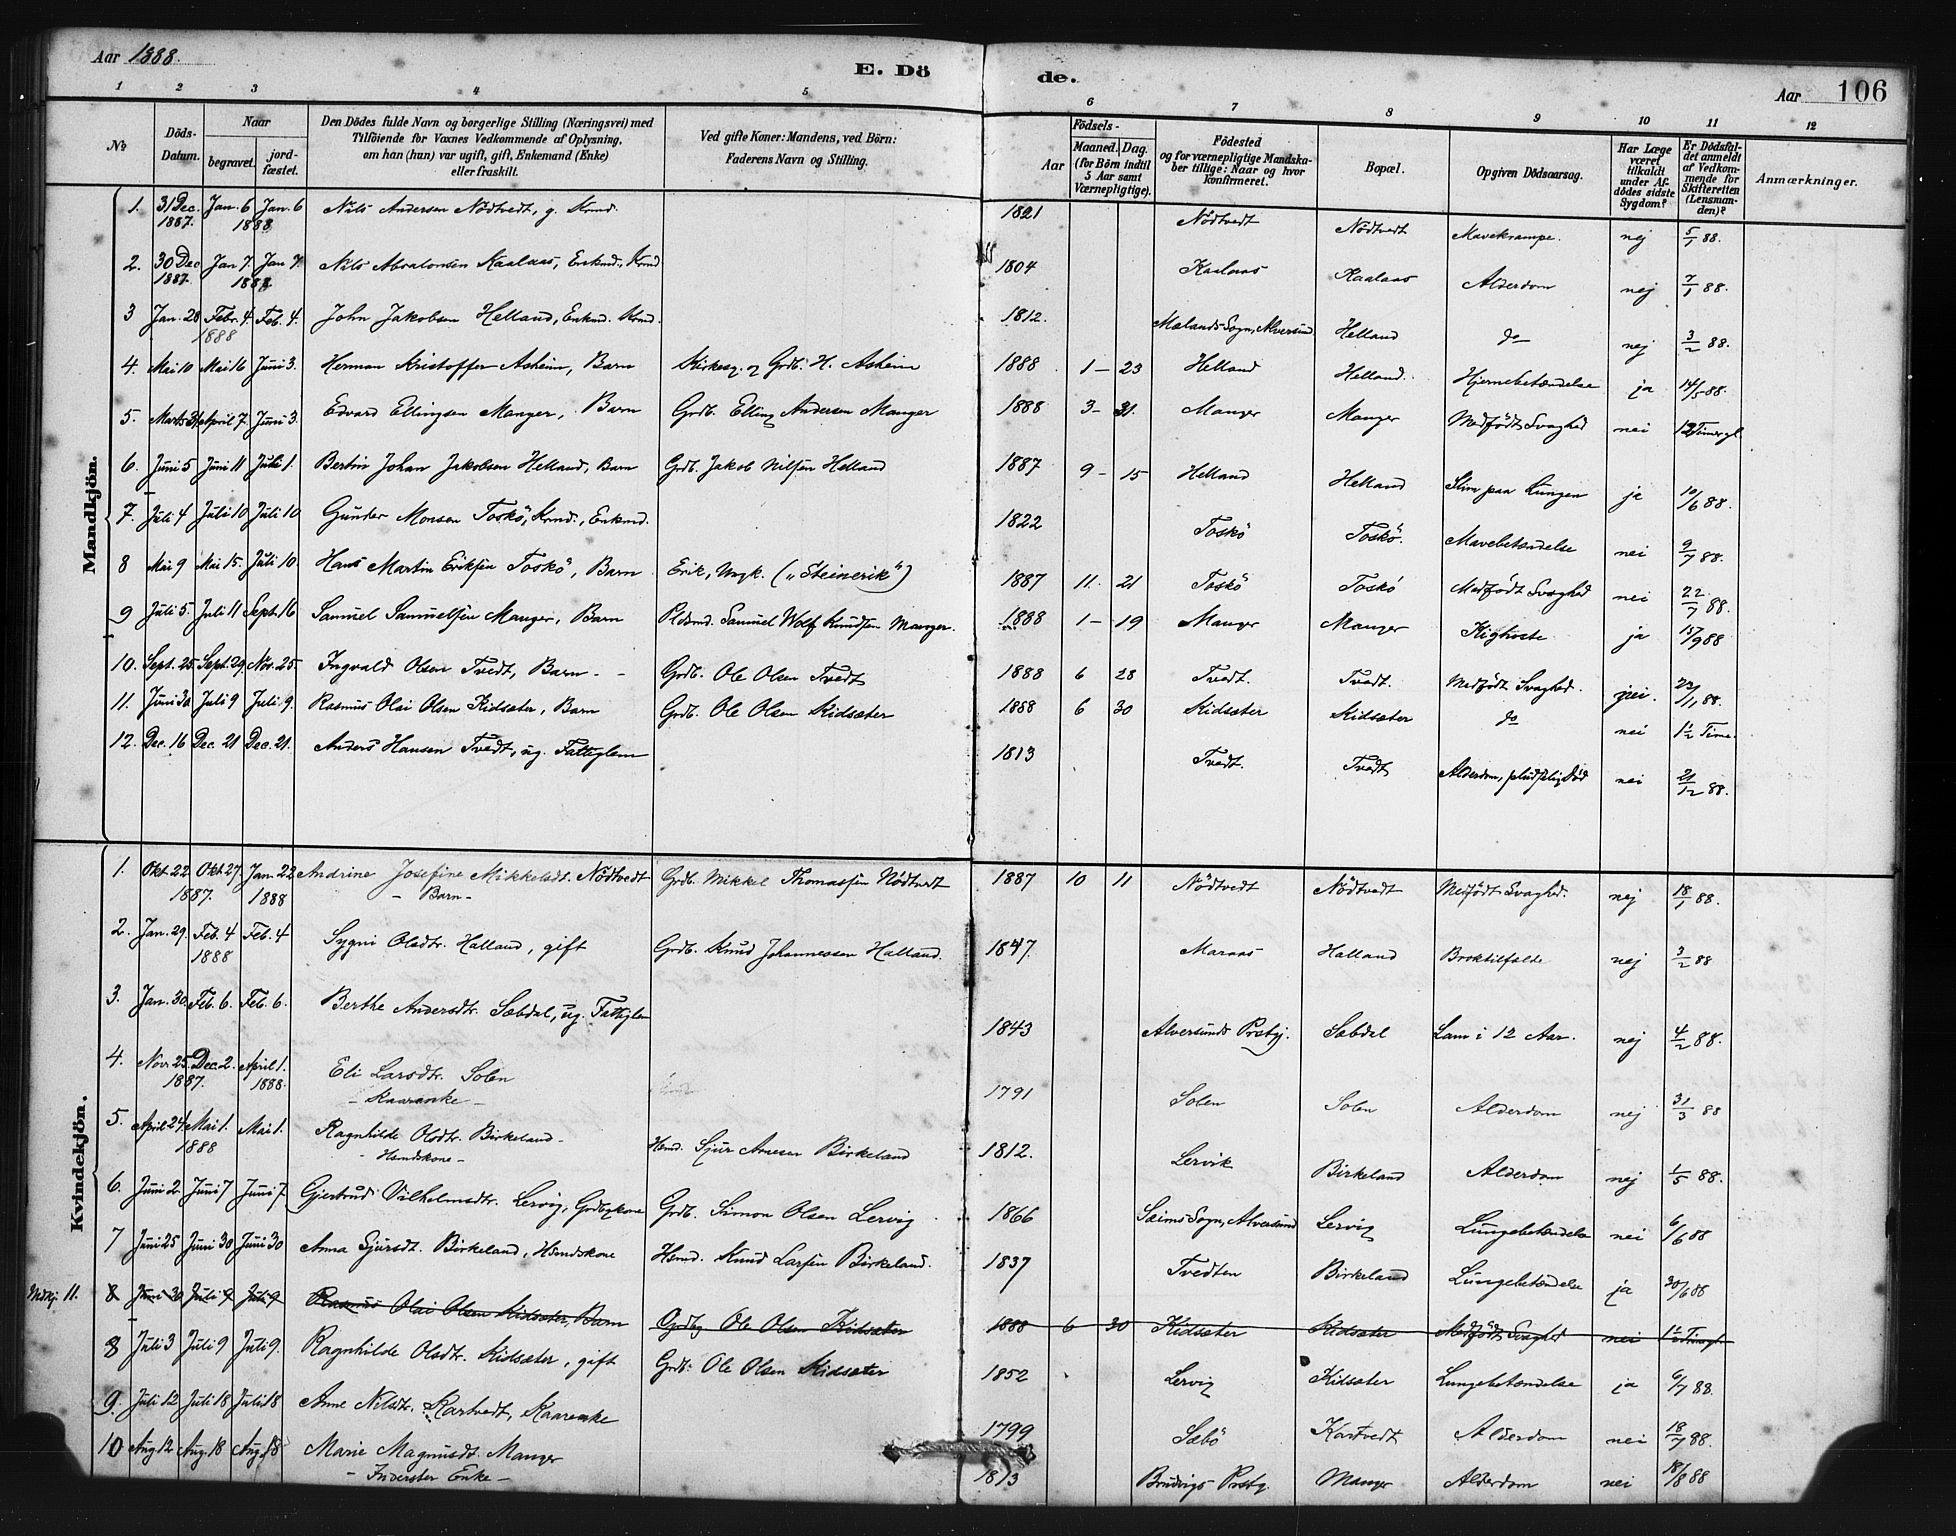 Aar 1888.
E. Dö
de.
Aar 106
1 2 3 4 5 6 7 8 9 10 11 12
No
Döds-Datum.
Naar
begravet.
jord-fæstet.
Den Dödes fulde Navn og borgerlige Stilling (Næringsvei) med
Tilföiende for Voxnes Vedkommende af Oplysning,
om han (hun) var ugift, gift, Enkemand (Enke)
eller fraskilt.
Ved gifte Koner: Mandens, ved Börn:
Faderens Navn og Stilling.
Födsels-
Aar Maaned. Dag.
(for Börn indtil
5 Aar samt
Værnepligtige).
Födested
og for værnepligtige Mandska-
ber tillige: Naar og hvor
konfirmeret.
Bopæl.
Opgiven Dödsaarsag.
Har Læge
været
tilkaldt
under Af-
dödes sidste
Sygdom?
Er Dödsfal-
det anmeldt
af Vedkom-
mende for
Skifteretten
(Lensman-
den)?
Anmærkninger.
Mandkjön.
1. 31 Dec. 1887. Jan. 6 Jan. 6 1888 Nils Andersen Nödtvedt, g. Krmd. 1821 Nödtvedt Nödtvedt Mavekrampe. nej 5/1 88.
2. 30 Dec 1887. Jan 7. Jan 7. 1888 Nils Absalonsen Kaalaas, Enkmd., Krmd 1804 Kaalaas Kaalaas Alderdom nej 7/1 88.
3 Jan. 28 Febr. 4. Feb. 4. 1888 John Jakobsen Helland, Enkmd. Krmd. 1812. Mælands Sogn, Alversund Helland do nej 3/2 88.
4. Mai 10 Mai 16 Juni 3. Herman Kristoffer Asheim, Barn Kirkesg. og Grdb. H. Asheim 1888 1 - 23 Helland Helland. Hjernebetændelse ja 14/5 88.
5. Marts 31 April 7. Juni 3. Edvard Ellingsen Manger, Barn Grdb. Elling Andersen Manger 1888 3 - 31. Manger Manger Medfödt Svaghed nei 12 Timer gl.
6. Juni 5 Juni 11 Juli 1. Bertin Johan Jakobsen Helland, Barn Grdb. Jakob Nilsen Helland 1887 9 - 15 Helland Helland Slim paa Lungen ja 10/6 88.
7. Juli 4 Juli 10 Juli 10 Gunder Monsen Toskö, Krmd., Enkmd. 1822 Toskö Toskö. Mavebetændelse nei 9/7 88.
8 Mai 9 Mai 15. Juli 10. Hans Martin Eriksen Toskö, Barn Erik, Ungk. („Steinerik") 1887 11. 21 Toskö Toskö Medfödt Svaghed nei 22/7 88.
9 Juli 5. Juli 11 Sept. 16 Samuel Samuelsen Manger, Barn Pldsmd. Samuel Wolf Knudsen Manger. 1888 1 - 19 Manger Manger Kighoste ja 15/9 88
10. Sept. 25. Sept. 29. Nov. 25. Ingvald Olsen Tvedt, Barn - Grdb. Ole Olsen Tvedt 1888 6 28 Tvedt. Tvedt. Medfödt Svaghed. nei. 22/11 88.
11. Juni 30 Juli 9 Juli 9. Rasmus Olai Olsen Kidsæter, Barn Grdb. Ole Olsen Kidsæter 1888 6 30 Kidsæter Kidsæter do nei 1½ Time.
12. Dec. 16 Dec. 21 Dec. 21. Anders Hansen Tvedt, ug. Fattiglem 1813 Tvedt. Tvedt Alderdom, pludselig Död nei 21/12 88.
Kvindekjön.
1. Okt 22. Okt 27. 1887. Jan. 22 1888 Andrine Josefine Mikkelsdt. Nödtvedt - Barn - Grdb. Mikkel Thomassen Nödtvedt 1887 10 11 Nödtvedt Nödtvedt Medfödt Svaghed. nej 18/1 88.
2. Jan. 29. Feb. 4 Feb. 4 1888 Sygni Olsdtr. Halland, gift Grdb. Knud Johannessen Halland. 1847. Maraas Halland Broktilfælde nej 3/2 88
3. Jan. 30. Feb. 6. Feb. 6. Berthe Andersdtr. Sæbdal, ug. Fattiglem 1843 Alversunds Prstgj. Sæbdal Lam i 12 Aar. nej 4/2 88.
4. Novr 25. Dec. 2. 1887. April 1. 1888. Eli Larsdtr. Solen - Kaarenke - 1791 Solen Solen Alderdom nej 31/3 88
5. April 24. Mai 1. Mai 1. 1888 Ragnhilde Olsdtr. Birkeland - - Hsmdskone - Hsmd. Sjur Arnesen Birkeland 1812. Lervik Birkeland Alderdom nej 1/5 88.
6. Juni 2. Juni 7 Juni 7. Gjertrud Vilhelmsdtr. Lervig, Grdbrkone Grdb. Simon Olsen Lervig 1866 Seims Sogn, Alversund Lervig Lungebetændelse nei 6/6 88
7 Juni 25 Juni 30 Juni 30 Anna Sjursdt. Birkeland, Hsmdskone Hsmd. Knud Larsen Birkeland. 1837 Tvedten Birkeland Lungebetændelse ja 30/6 88
Mdkj 11. 8 Juni 30 Juli 9 Juli 9 Rasmus Olai Olsen Kidsæter, Barn Grdbg Ole Olsen Kidsæter 1888 6 30 Kidsæter Kidsæter Medfödt Svaghed nei 1½ Time gl.
8 Juli 3 Juli 9 Juli 9. Ragnhilde Olsdtr. Kidsæter, gift Grdb. Ole Olsen Kidsæter 1852 Lervig Kidsæter Lungebetændelse ja 6/7 88.
9. Juli 12 Juli 18 Juli 18 Anne Nilsdtr. Kartvedt, Kaarenke 1799 Sæbö Kartvedt Alderdom nei 18/7 88.
10 Aug. 12 Aug. 18 Aug. 18 Marie Magnusdt. Manger - Inderster Enke - 1813 Bruvigs Prstg. Manger Alderdom nei 18/8 88